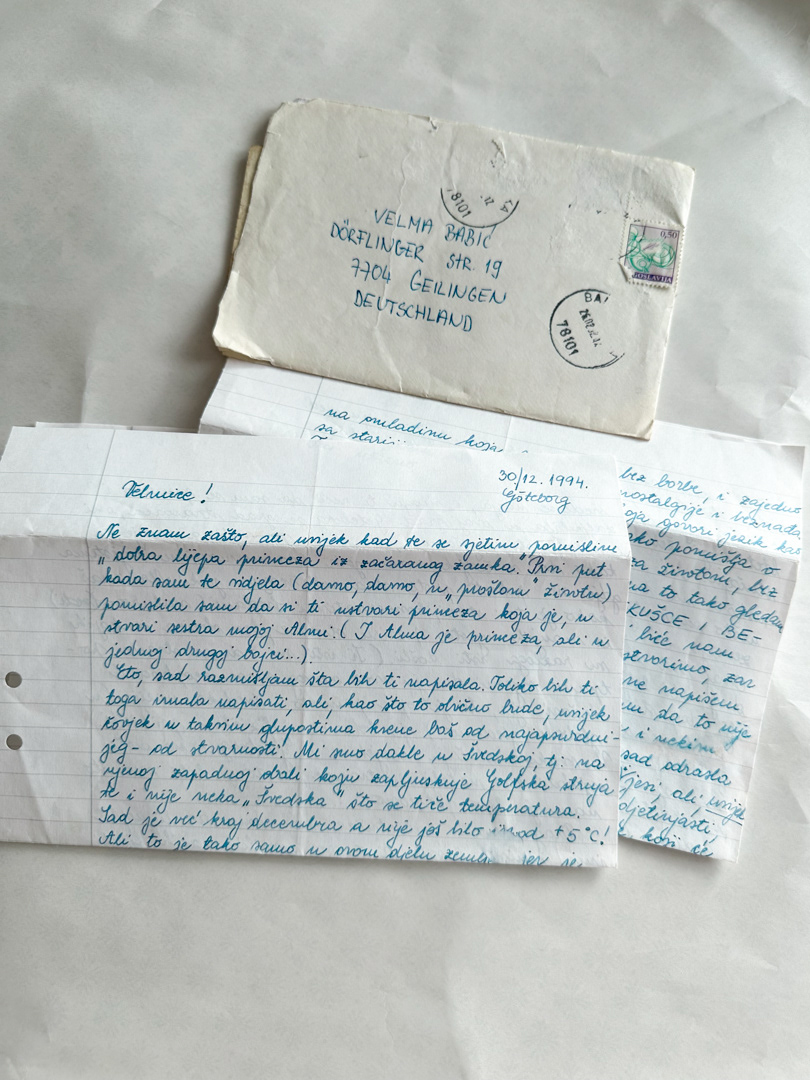 VELMA BABIĆ
DÖRFLINGER STR. 19
7704 GEILINGEN
DEUTSCHLAND
0,50
78101
BA
78101
na omladinu koja
sa
30/12. 1994.
Göteborg
Velmice!
Ne znam zašto, ali uvijek kad te se sjetim pomislim
"dobra lijepa princeza iz začaranog zamka." Prvi put
kada sam te vidjela (damo, damo, u "prošlom" životu)
pomislila sam da si ti ustvari princeza koja je, u
stvari sestra mojoj Almi. (I Alma je princeza, ali u
jednoj drugoj bajci...).
Eto, sad razmišljam šta bih ti napisala. Toliko bih ti
toga imala napisati, ali, kao što to obično bude, uvijek
čovjek u takvim glupostima krene baš od najapsurdni-
jeg - od stvarnosti. Mi smo dakle u Švedskoj, tj. na
njenoj zapadnoj obali koju zapljuskuje Golfska struja
te i nije neka "Švedska" što se tiče temperatura.
Sad je već kraj decembra a nije još bilo od +5°C!
Ali to je tako samo u ovom djelu zemlje jer je
bez borbe, i zajedno
nostalgije i beznađa
koja govori jezik kao
pomišlja o
životom, bez
to tako gledam
KUŠCE, BE-
biće nam
stvorimo, zar
ne napišem
da to nije
i nekim
sad odrasla
ali, uvijek
djetinjasti,
koji će